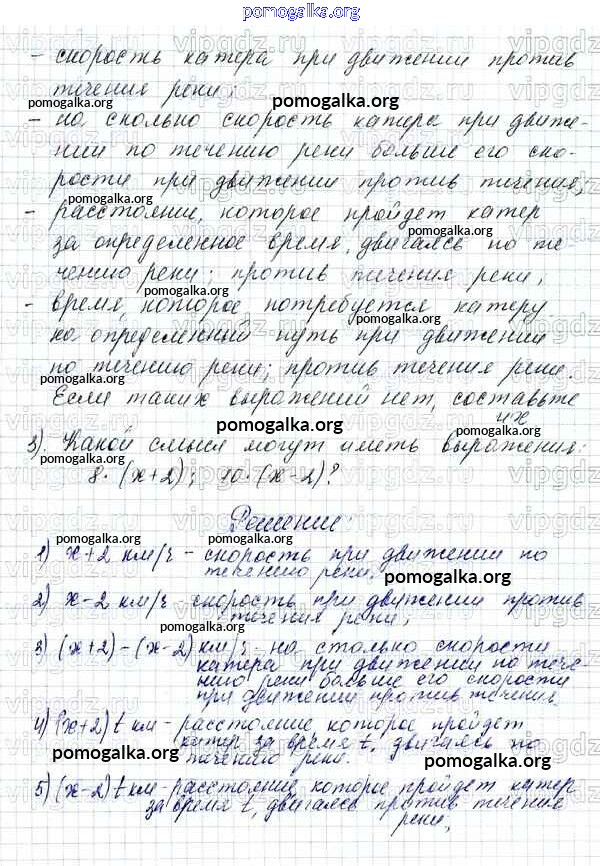 pomogalka.org
- скорость катера при движении против
течения реки;
pomogalka.org
pomogalka.org
- на сколько скорость катера при движе-
нии по течению реки больше его ско-
pomogalka.org
рости при движении против течения;
- расстоянии, которое пройдет катер
pomogalka.org
за определенное время, двигаясь по те-
чению реки; против течения реки;
pomogalka.org
- время, которое потребуется катеру
на определенный путь при движении
по течению реки; против течения реки.
pomogalka.org
Если таких выражений нет, составьте
их
pomogalka.org
3). Какой смысл могут иметь выражения:
8·(x+2); 10·(x-2)?
pomogalka.org
Решение:
pomogalka.org
1) x+2 км/ч - скорость при движении по
течению реки;
pomogalka.org
2) x-2 км/ч - скорость при движении против
течения реки;
pomogalka.org
3) (x+2)-(x-2) км/ч - на столько скорости
катера при движении по тече-
нию реки больше его скорости
при движении против течения
pomogalka.org
4) (x+2)t км - расстояние которое пройдет
катер за время t, двигаясь по
течению реки.
pomogalka.org
pomogalka.org
5) (x-2)t км - расстояние, которое пройдет катер
за время t, двигаясь против течения
реки;
pomogalka.org